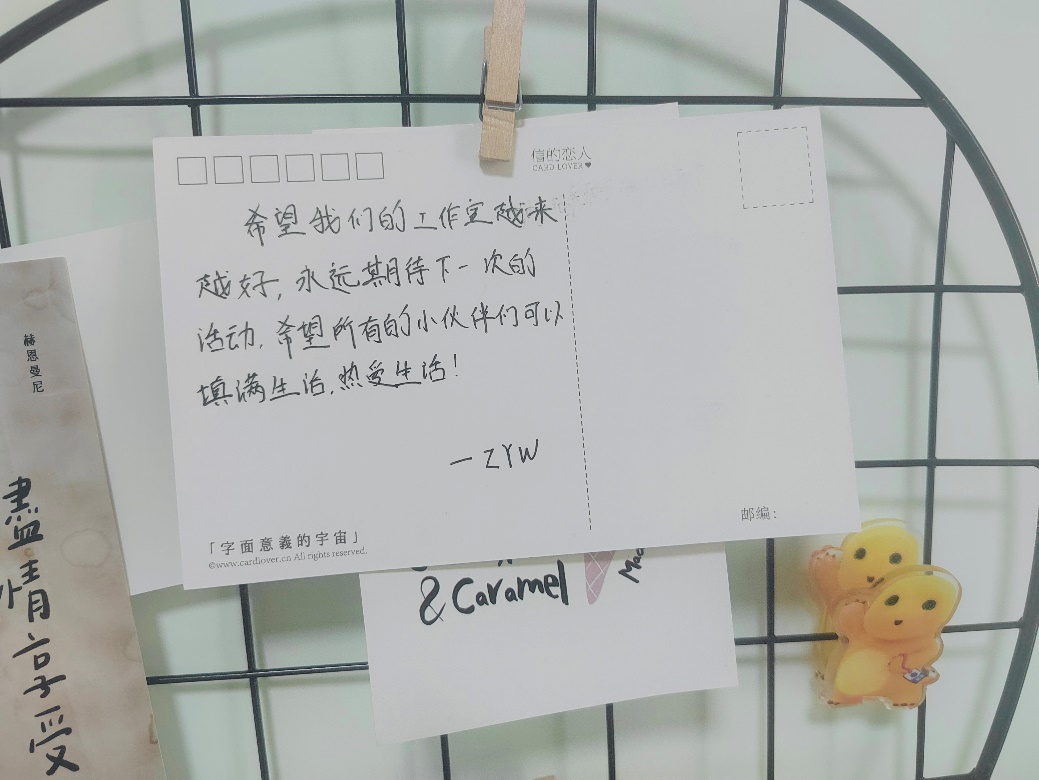 信的恋人
CARD LOVER
希望我们的工作室越来
越好，永远期待下一次的
活动，希望所有的小伙伴们可以
填满生活，热爱生活！
一 ZYW
「字面意義的宇宙」
©www.cardlover.cn All rights reserved.
邮编：
& Caramel
赫恩曼尼
盡情享受